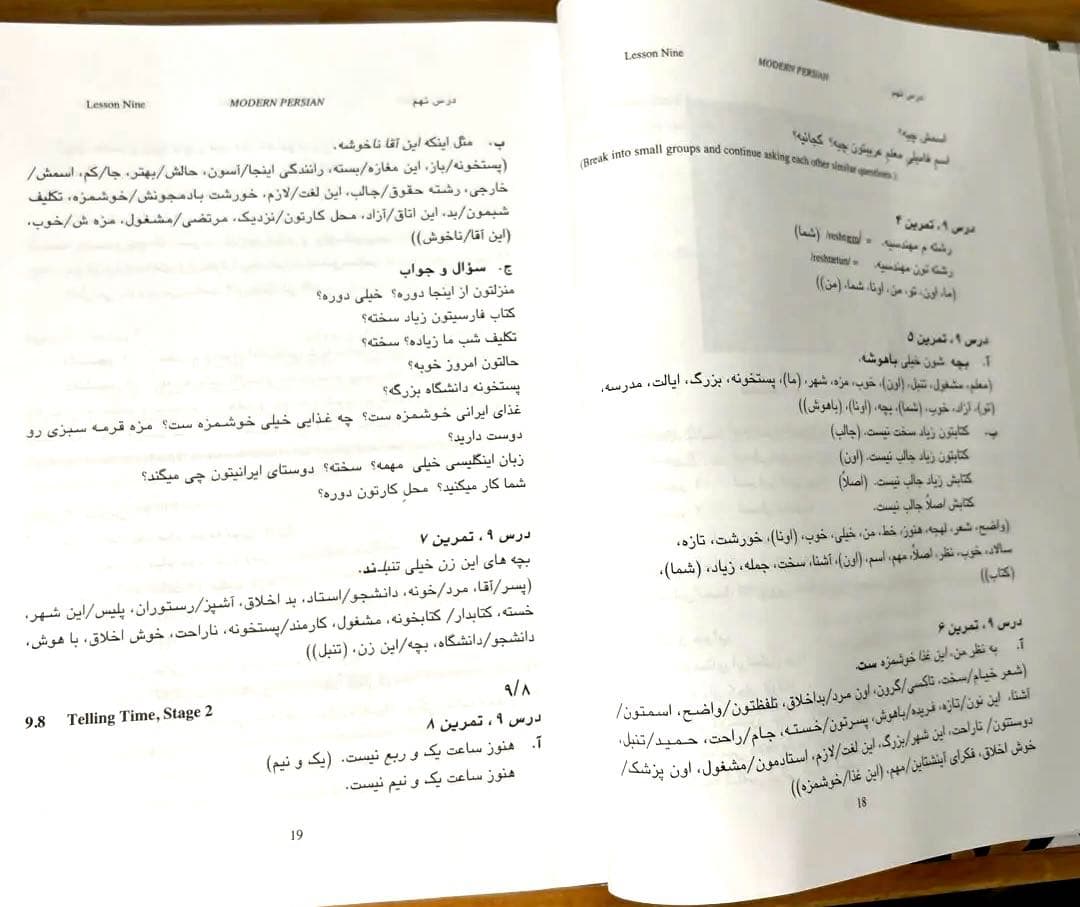 Lesson Nine MODERN PERSIAN درس نهم
اسمش چیه؟
اسم فامیلی معلم عربیتون چیه؟ کجائیه؟
(Break into small groups and continue asking each other similar questions.)
درس ۹، تمرین ۴
رشته م مهندسیه. = /reshtæm/ (شما)
رشته تون مهندسیه. = /reshtætun/
(ما، اون، تو، من، اونا، شما، (من))
درس ۹، تمرین ۵
آ. بچه شون خیلی باهوشه.
(معلم، مشغول، تنبل، (اون)، خوب، مزه، شهر، (ما)، پستخونه، بزرگ، ایالت، مدرسه،
(تو)، آزاد، خوب، (شما)، بچه، (اونا)، (باهوش))
ب. کتابتون زیاد سخت نیست. (جالب)
کتابتون زیاد جالب نیست. (اون)
کتابش زیاد جالب نیست. (اصلاً)
کتابش اصلاً جالب نیست.
(واضح، شعر، لهجه، هنوز، خط، من، خیلی، خوب، (اونا)، خورشت، تازه،
سالاد، خوب، نظر، اصلاً، مهم، اسم، (اون)، آشنا، سخت، جمله، زیاد، (شما)،
(کتاب))
درس ۹، تمرین ۶
آ. به نظر من، این غذا خوشمزه ست.
(شعر خیام/سخت، تاکسی/گرون، اون مرد/بداخلاق، تلفظتون/واضح، اسمتون/
آشنا، این نون/تازه، فریده/باهوش، پسرتون/خسته، جام/راحت، حمید/تنبل،
دوستتون/ناراحت، این شهر/بزرگ، این لغت/لازم، استادمون/مشغول، اون پزشک/
خوش اخلاق، فکرای آینشتاین/مهم، (این غذا/خوشمزه))
18
Lesson Nine MODERN PERSIAN درس نهم
ب. مثل اینکه این آقا ناخوشه.
(پستخونه/باز، این مغازه/بسته، رانندگی اینجا/آسون، حالش/بهتر، جا/کم، اسمش/
خارجی، رشته حقوق/جالب، این لغت/لازم، خورشت بادمجونش/خوشمزه، تکلیف
شبمون/بد، این اتاق/آزاد، محل کارتون/نزدیک، مرتضی/مشغول، مزه ش/خوب،
(این آقا/ناخوش))
ج. سؤال و جواب
منزلتون از اینجا دوره؟ خیلی دوره؟
کتاب فارسیتون زیاد سخته؟
تکلیف شب ما زیاده؟ سخته؟
حالتون امروز خوبه؟
پستخونه دانشگاه بزرگه؟
غذای ایرانی خوشمزه ست؟ چه غذایی خیلی خوشمزه ست؟ مزه قرمه سبزی رو
دوست دارید؟
زبان اینگلیسی خیلی مهمه؟ سخته؟ دوستای ایرانیتون چی میگند؟
شما کار میکنید؟ محلِ کارتون دوره؟
درس ۹، تمرین ۷
بچه های این زن خیلی تنبلند.
(پسر/آقا، مرد/خونه، دانشجو/استاد، بد اخلاق، آشپز/رستوران، پلیس/این شهر،
خسته، کتابدار/ کتابخونه، مشغول، کارمند/پستخونه، ناراحت، خوش اخلاق، با هوش،
دانشجو/دانشگاه، بچه/این زن، (تنبل))
۹/۸
9.8 Telling Time, Stage 2
درس ۹، تمرین ۸
آ. هنوز ساعت یک و ربع نیست. (یک و نیم)
هنوز ساعت یک و نیم نیست.
19